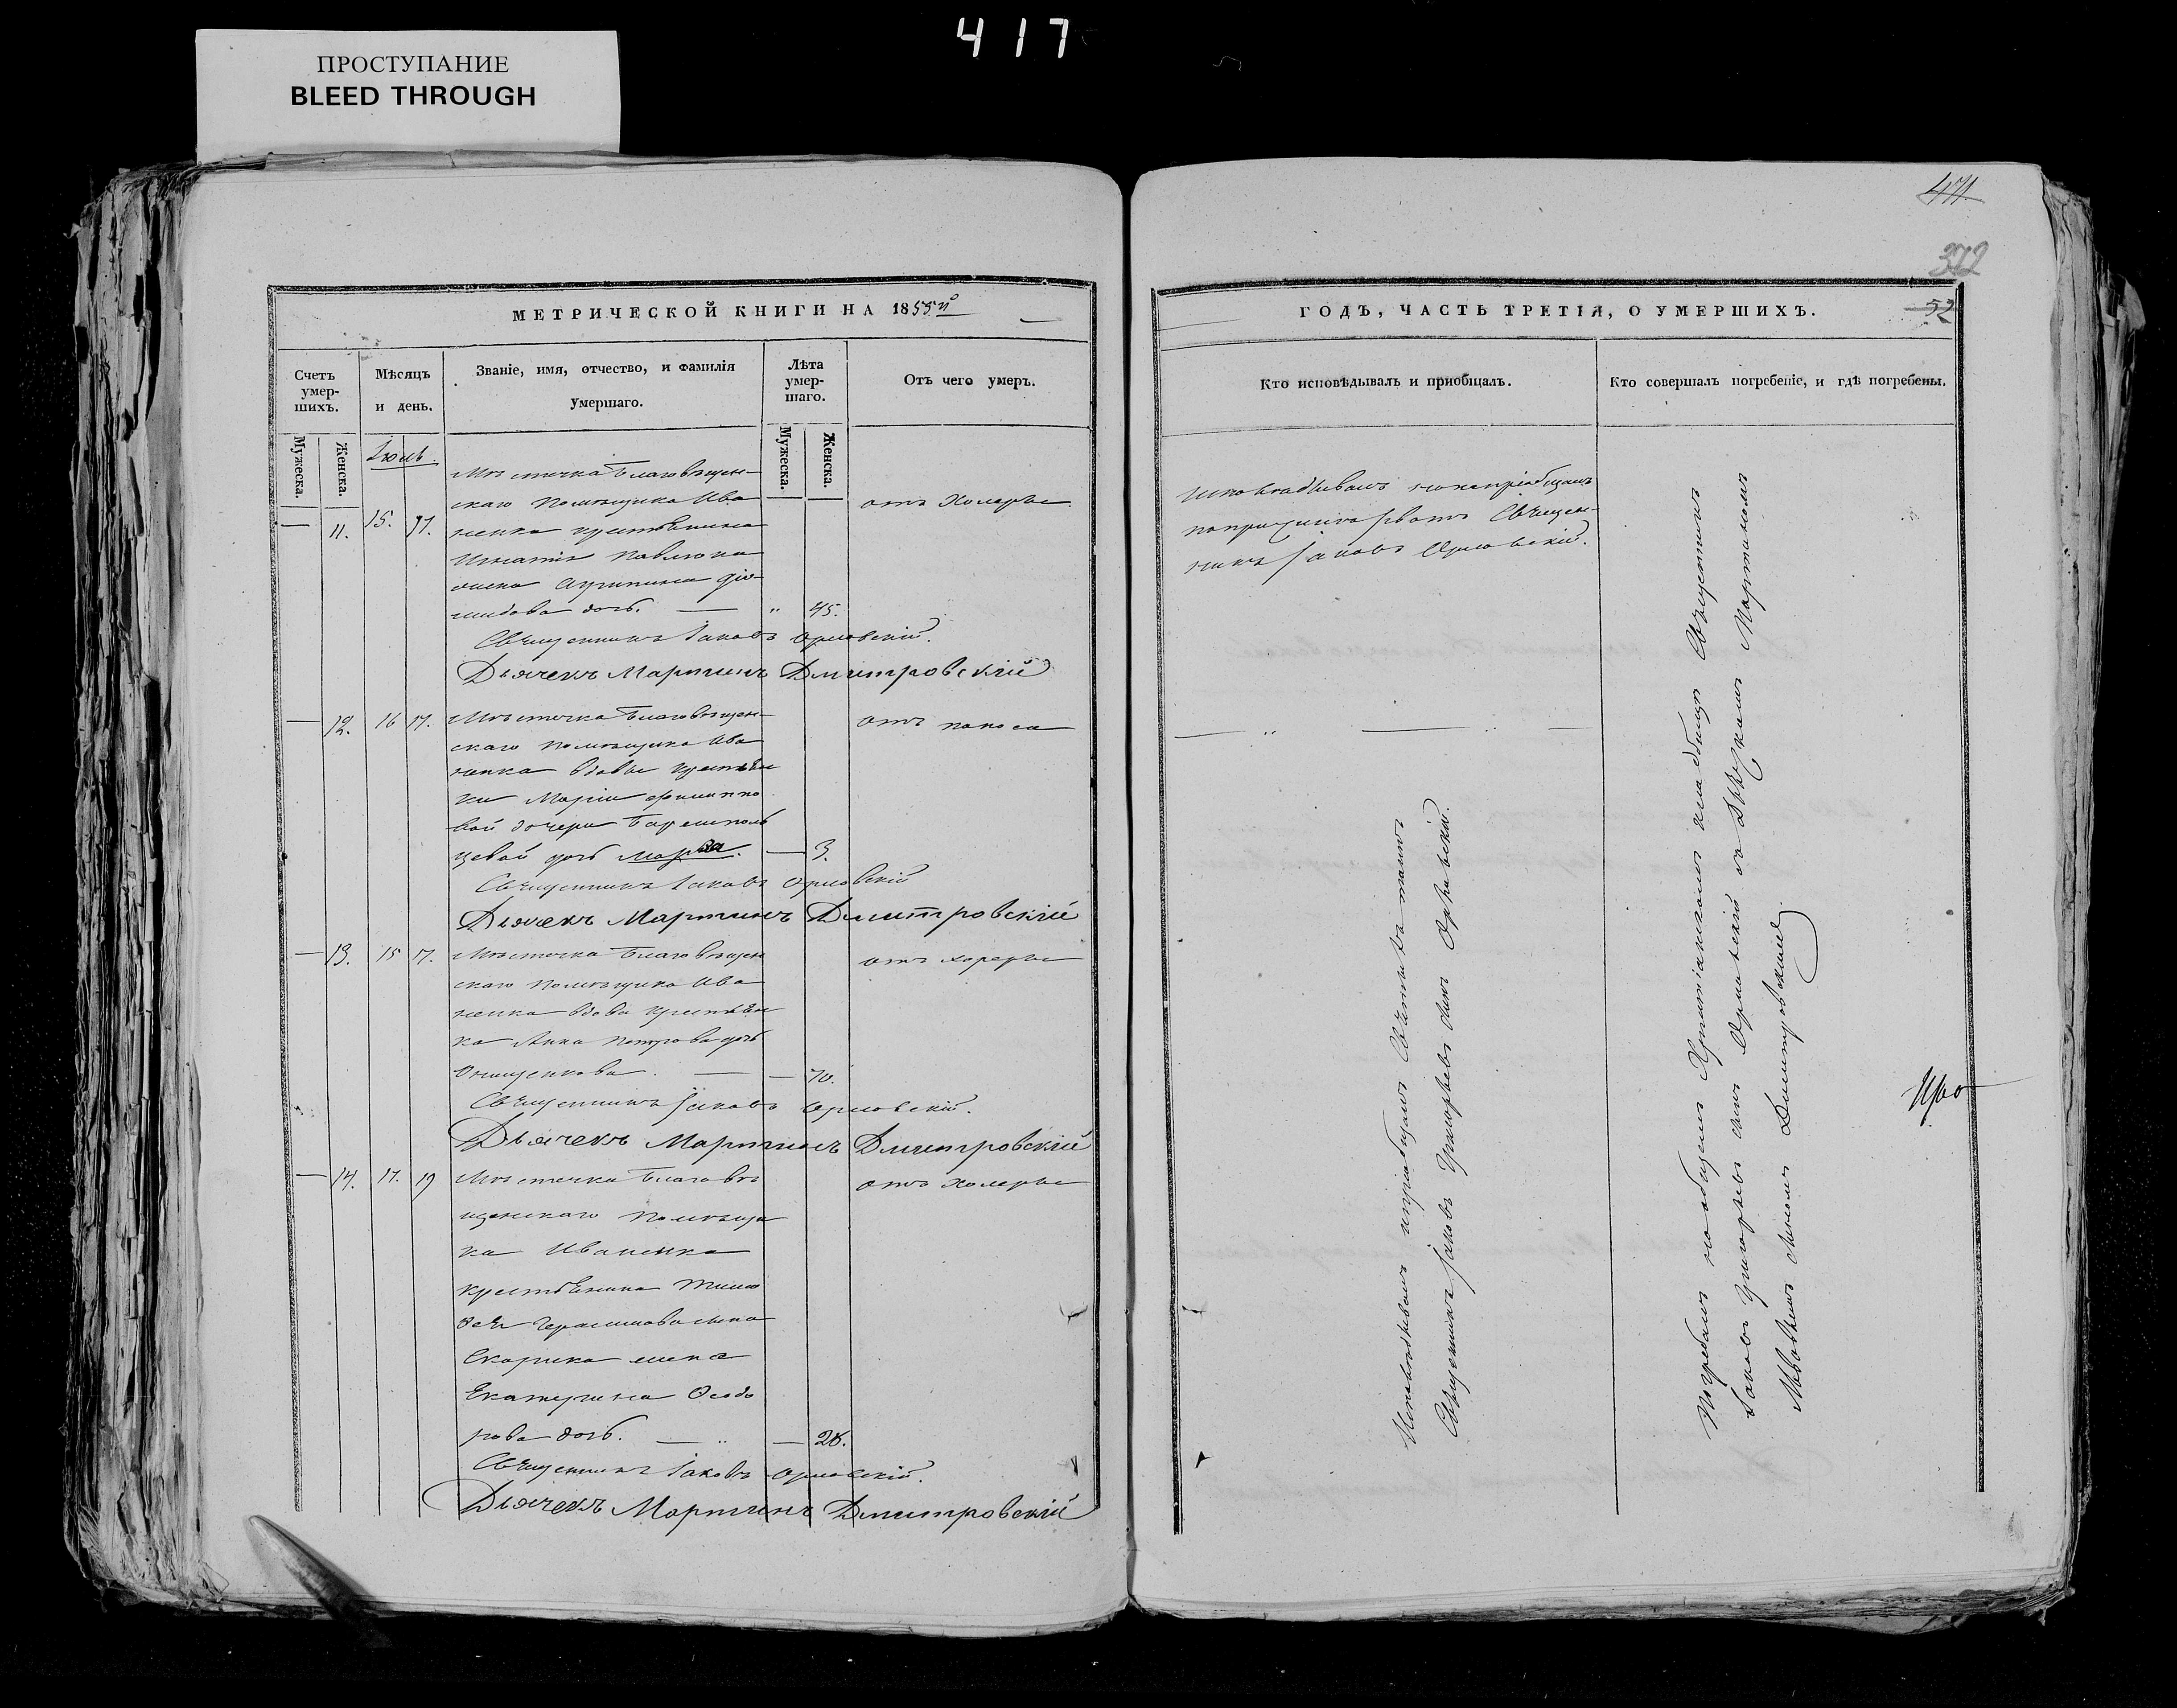 417
ПРОСТУПАНИЕ
BLEED THROUGH
МЕТРИЧЕСКОЙ КНИГИ НА 1855й
Счетъ умер-шихъ.
Мѣсяцъ и день.
Званіе, имя, отчество, и фамилія умершаго.
Лѣта умер-шаго.
Отъ чего умеръ.
Мужеска.
Женска.
Мужеска.
Женска.
Іюль.
Мѣстечка Благовѣщен-
скаго Помѣщика Ива
ненка крестьянина
Игнатія Павлюка
жена Агрипина
дова дочь. 45.
11. 15. 17.
отъ Холеры
Священникъ Іаковъ Орловскій.
Дьячекъ Мартинъ Дмитровскій
12. 16 17.
Мѣстечка Благовѣщен-
скаго Помѣщика Ива
ненка вдовы крестьян
ки Маріи Филиппо
вой дочери
цевой дочь 3.
отъ поноса
Священникъ Іаковъ Орловскій
Дьячекъ Мартинъ Дмитровскій
13. 15 17.
Мѣстечка Благовѣщен
скаго Помѣщика Ива
ненка вдова крестьян
ка Анна Петрова дочь
Онищенкова. 70.
отъ холеры
Священникъ Іаковъ Орловскій.
Дьячекъ Мартинъ Дмитровскій
14. 17. 19
Мѣстечка Благовѣ
щенскаго Помѣщи
ка Иваненка
крестьянина Тимо
фея Герасимова сына
Скорика жена
Екатерина Феодо
рова дочь. 28.
отъ Холеры
Священникъ Іаковъ Орловскій.
Дьячекъ Мартинъ Дмитровскій
471
372
52
ГОДЪ, ЧАСТЬ ТРЕТІЯ, О УМЕРШИХЪ.
Кто исповѣдывалъ и пріобщалъ.
Кто совершалъ погребеніе, и гдѣ погребены.
Исповѣдывалъ но не пріобщалъ
по причинѣ рвоты Священ-
никъ Іаковъ Орловскій.
Исповѣдывалъ и пріобщалъ Святыхъ таинъ
Священникъ Іаковъ Григорьевъ сынъ Орловскій.
Погребалъ на общемъ Христіанскомъ кладбищѣ Священникъ
Іаковъ Григорьевъ сынъ Орловскій съ Дьячкомъ Мартиномъ
Дмитровскимъ